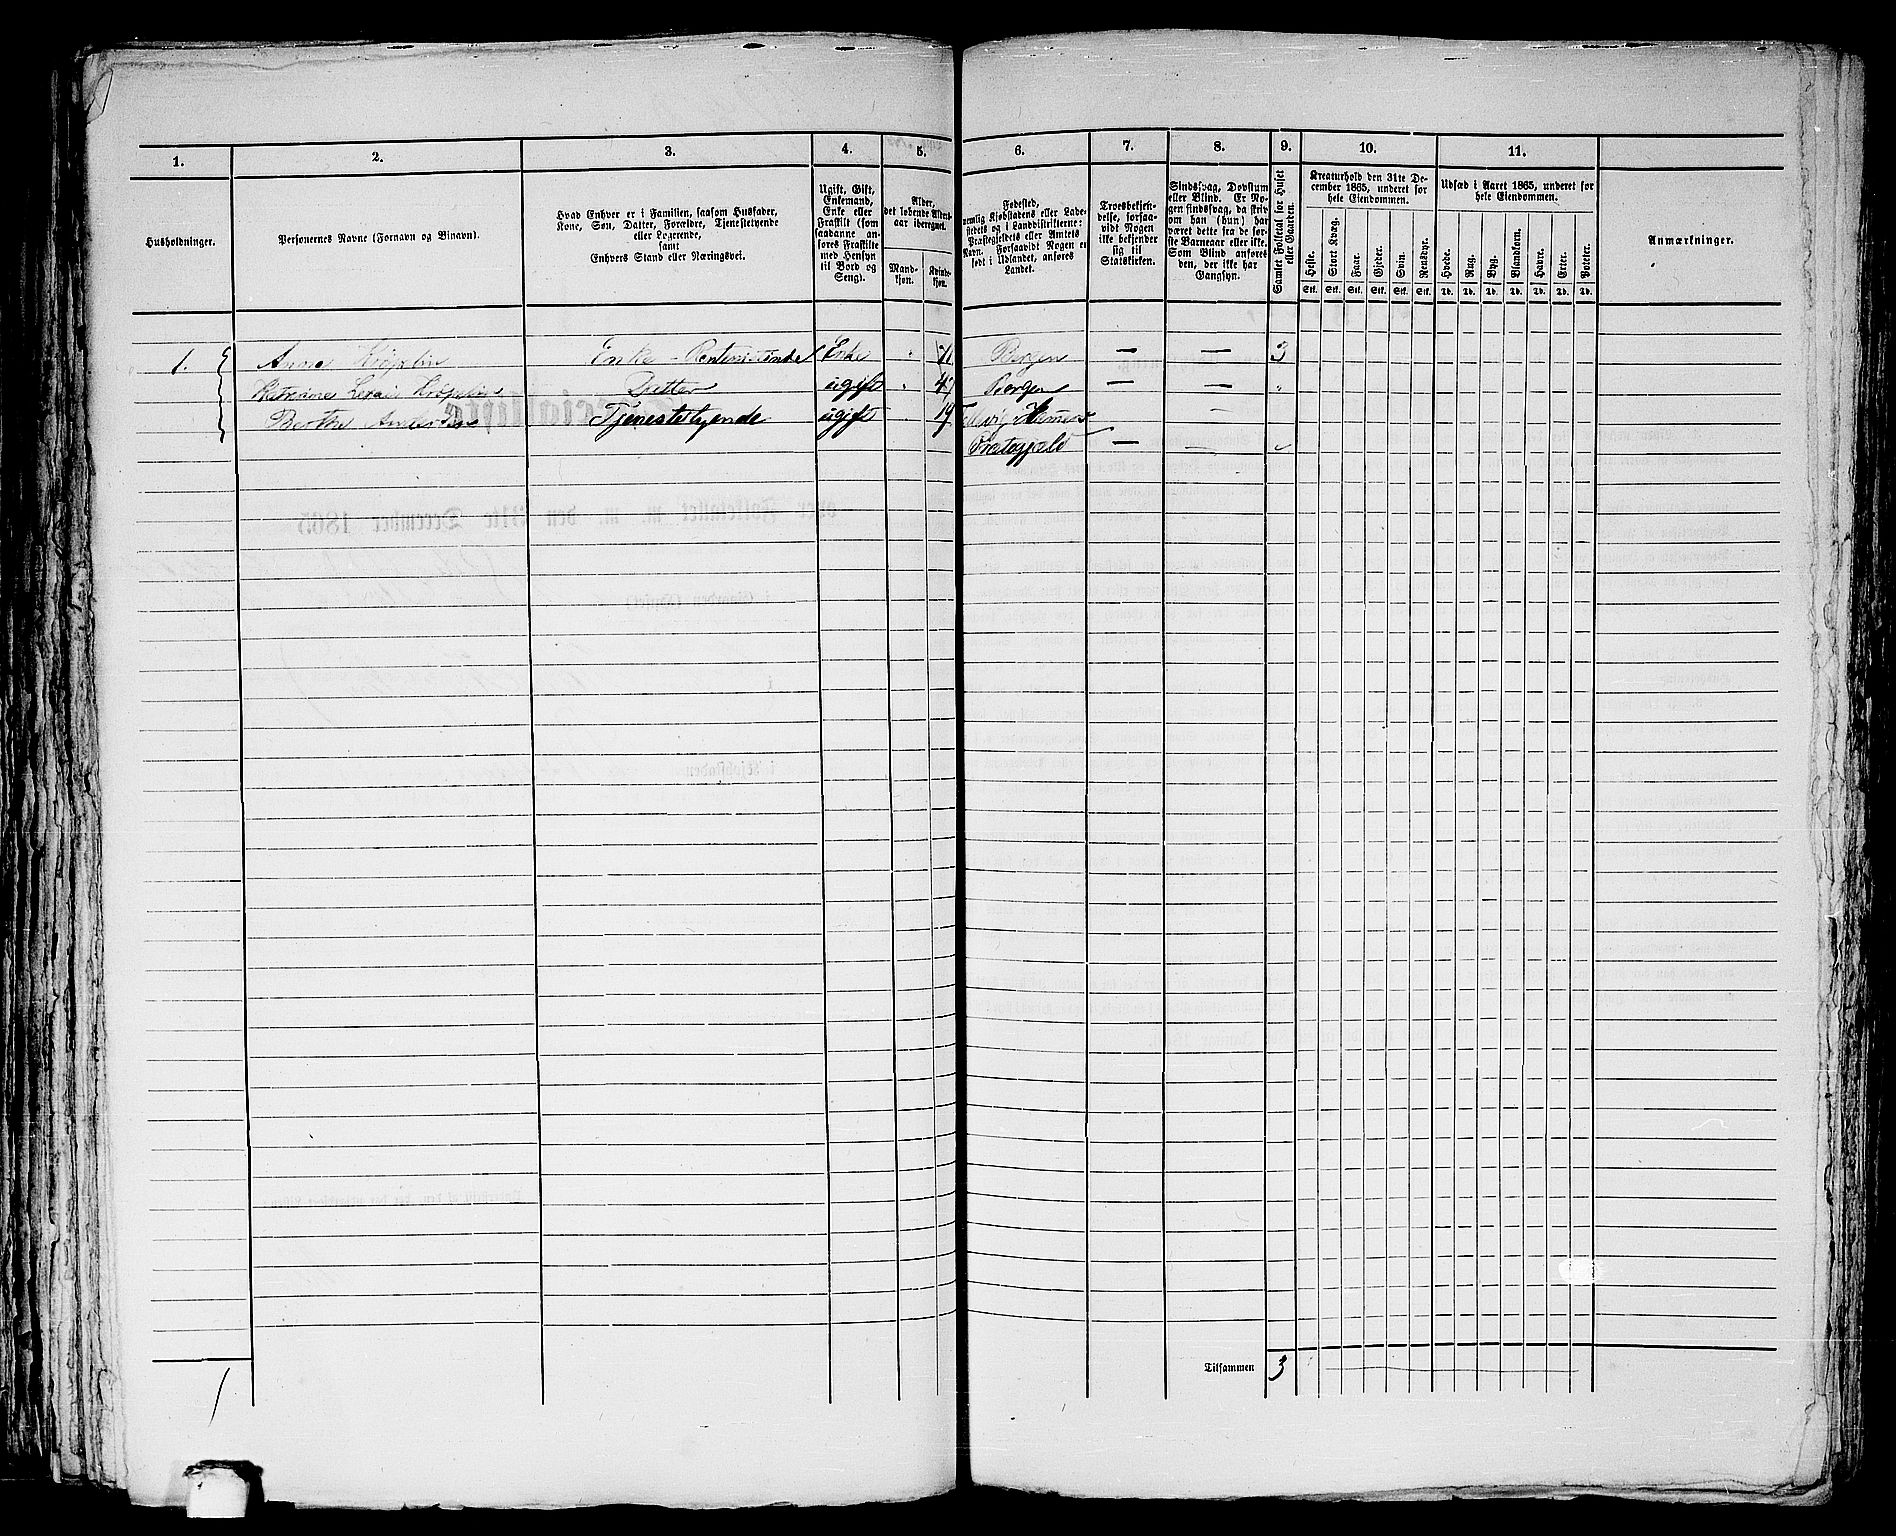 1.
2.
3.
4.
5.
6.
7.
8.
9.
10.
11.
Husholdninger.
Personernes Navne (Fornavn og Binavn).
Hvad Enhver er i Familien, saasom Husfader,
Kone, Søn, Datter, Forældre, Tjenestetyende
eller Logerende,
samt
Enhvers Stand eller Næringsvei.
Ugift, Gift,
Enkemand,
Enke eller
Fraskilt (som
saadanne an-
føres Fraskilte
med Hensyn
til Bord og
Seng).
Alder,
det løbende Alders-
aar iberegnet.
Mand-
kjøn.
Kvinde-
kjøn.
Fødested,
nemlig Kjøbstadens eller Lade-
stedets og i Landdistrikterne:
Præstegjeldets eller Amtets
Navn. Forsaavidt Nogen er
født i Udlandet, anføres
Landet.
Troesbekjen-
delse, forsaa-
vidt Nogen
ikke bekjender
sig til
Statskirken.
Sindssvag, Døvstum
eller Blind. Er No-
gen sindssvag, da skriv
om han (hun) har
været dette fra de før-
ste Barneaar eller ikke.
Som Blind anføres
den, der ikke har
Gangsyn.
Samlet Folketal for Huset
eller Gaarden.
Kreaturhold den 31te De-
cember 1865, underet for
hele Eiendommen.
Heste.
Stort Kvæg.
Faar.
Gjeder.
Svin.
Rensdyr.
Stk. Stk. Stk. Stk. Stk. Stk.
Udsæd i Aaret 1865, underet for
hele Eiendommen.
Hvede.
Rug.
Byg.
Blandkorn.
Havre.
Erter.
Poteter.
Td. Td. Td. Td. Td. Td. Td.
Anmærkninger.
1. Anna Enke - Enke 71 Bergen — — 3
Datter ugift 47 Bergen — —
Berthe Tjenestetyende ugift 19
Præstegjeld — —
Tilsammen 3
1